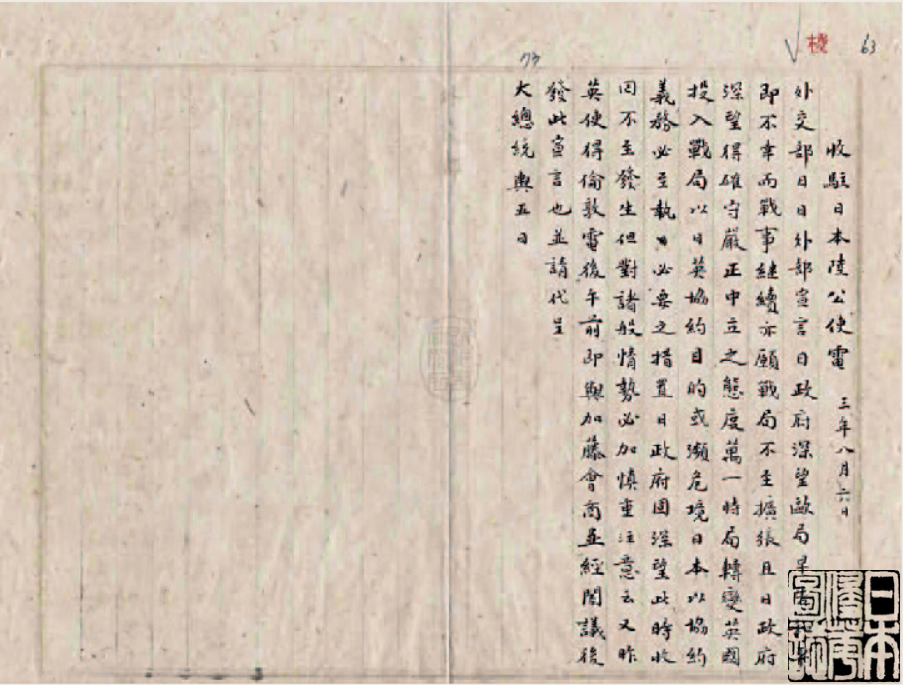 機 63
收駐日本陸公使電 三年八月六日
外交部日日外部宣言日政府深望歐局
即不幸而戰事繼續亦願戰局不至擴張且日政府
深望得確守嚴正中立之態度萬一時局轉變英國
投入戰局以日英協約目的或瀕危境日本以協約
義務必至執 必要之措置日政府固深望此時收
因不至發生但對諸般情勢必加慎重注意云又昨
英使得倫敦電後午前即與加藤會商並經閣議後
發此宣言也並請代呈
大總統輿五日
73
日本